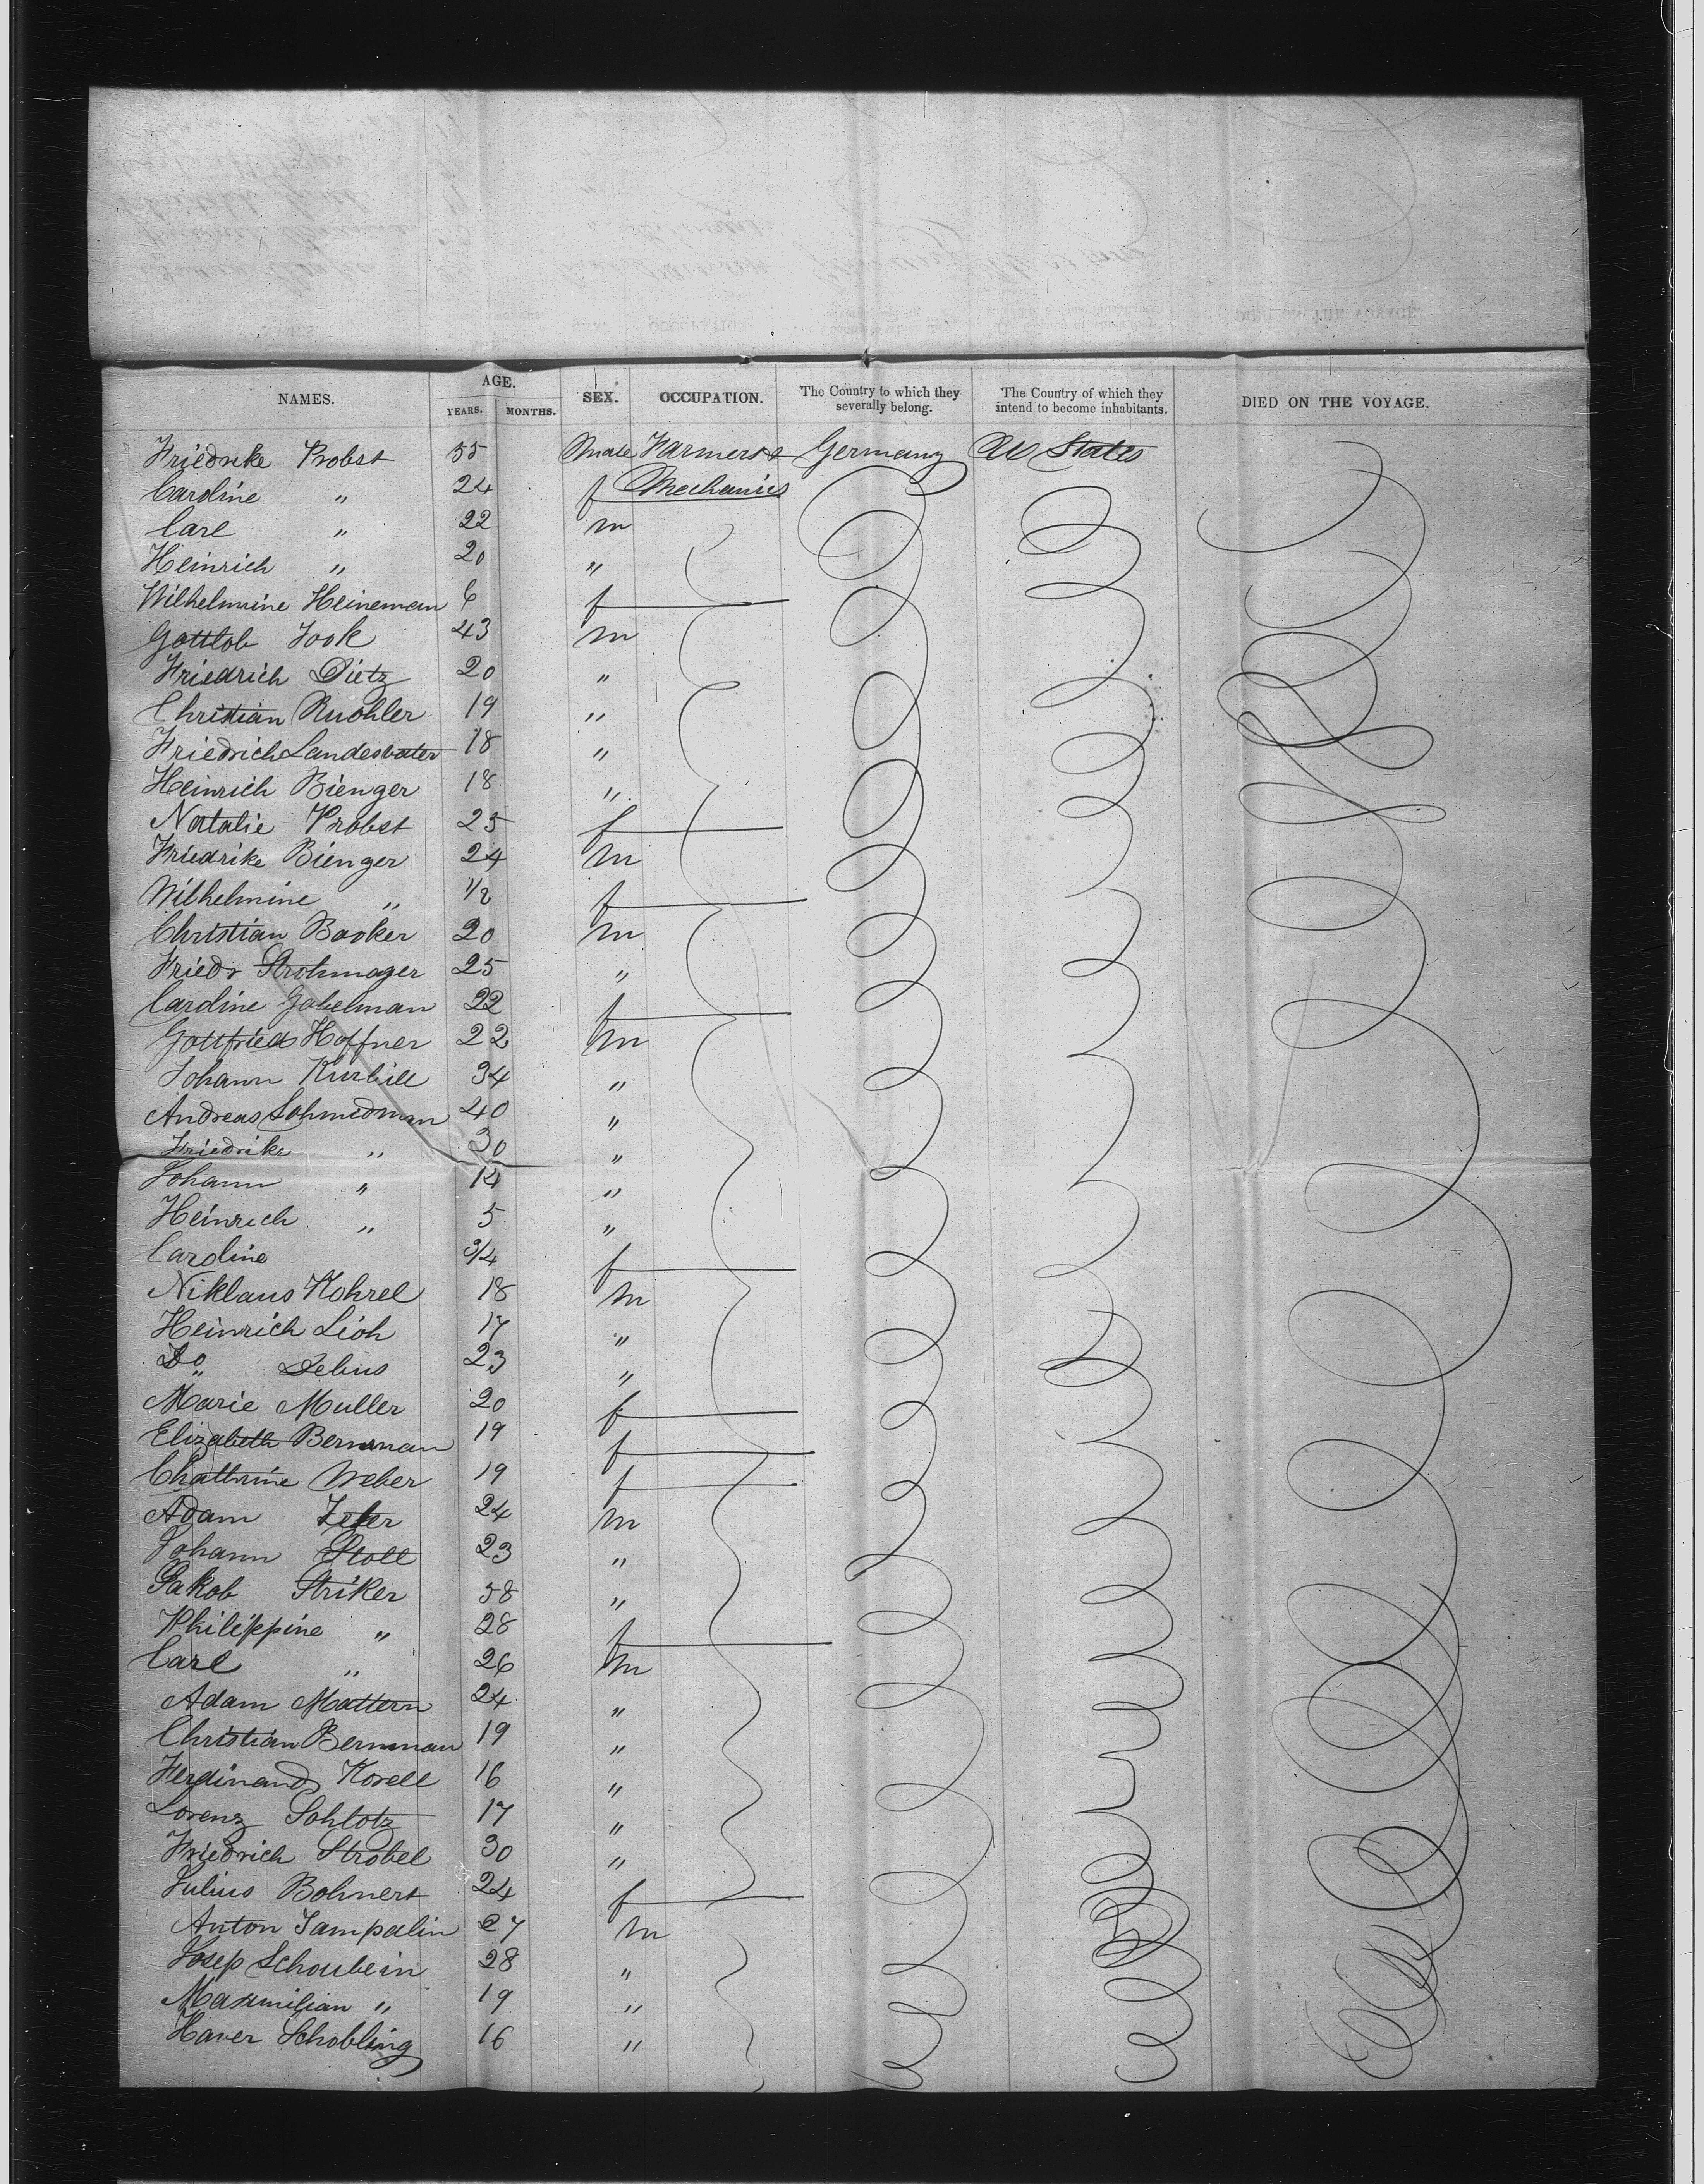 NAMES. AGE. YEARS. MONTHS. SEX. OCCUPATION. The Country to which they severally belong. The Country of which they intend to become inhabitants. DIED ON THE VOYAGE.
Friedrike Probst 55 male Farmers & Germany U States
Caroline " 24 f Mechanics
Carl " 22 m
Heinrich " 20 "
Wilhelmine Heineman 6 f
Gottlob Fook 43 m
Friedrich Dietz 20 "
Christian Ruohler 19 "
Friedrich Landesvater 18 "
Heinrich Bienger 18 "
Natalie Probst 25 f
Friedrike Bienger 24 m
Wilhelmine " 1/2 f
Christian Booker 20 m
Friedr Strohmayer 25 "
Caroline Gabelman 22 f
Gottfried Hoffner 22 m
Johann Kurbill 34 "
Andreas Schmidman 40 "
Friedrike " 30 "
Johann " 14 "
Heinrich " 5 "
Caroline 3/4 f
Niklaus Kohrel 18 m
Heinrich Lioh 17 "
Do " Debus 23 "
Marie Muller 20 f
Elizabeth Bernman 19 f
Chathrine Weber 19 f
Adam 24 m
Johann Stoll 23 "
Jakob Striker 58 "
Philippine " 28 f
Carl " 26 m
Adam Mattern 24 "
Christian Bernman 19 "
Ferdinand Korell 16 "
Lorenz Schlotz 17 "
Friedrich Strobel 30 "
Julius Bohnert 24 f
Anton Tampalin 27 m
Josep Schoubein 28 "
Maxmilian " 19 "
Xaver Schobling 16 "